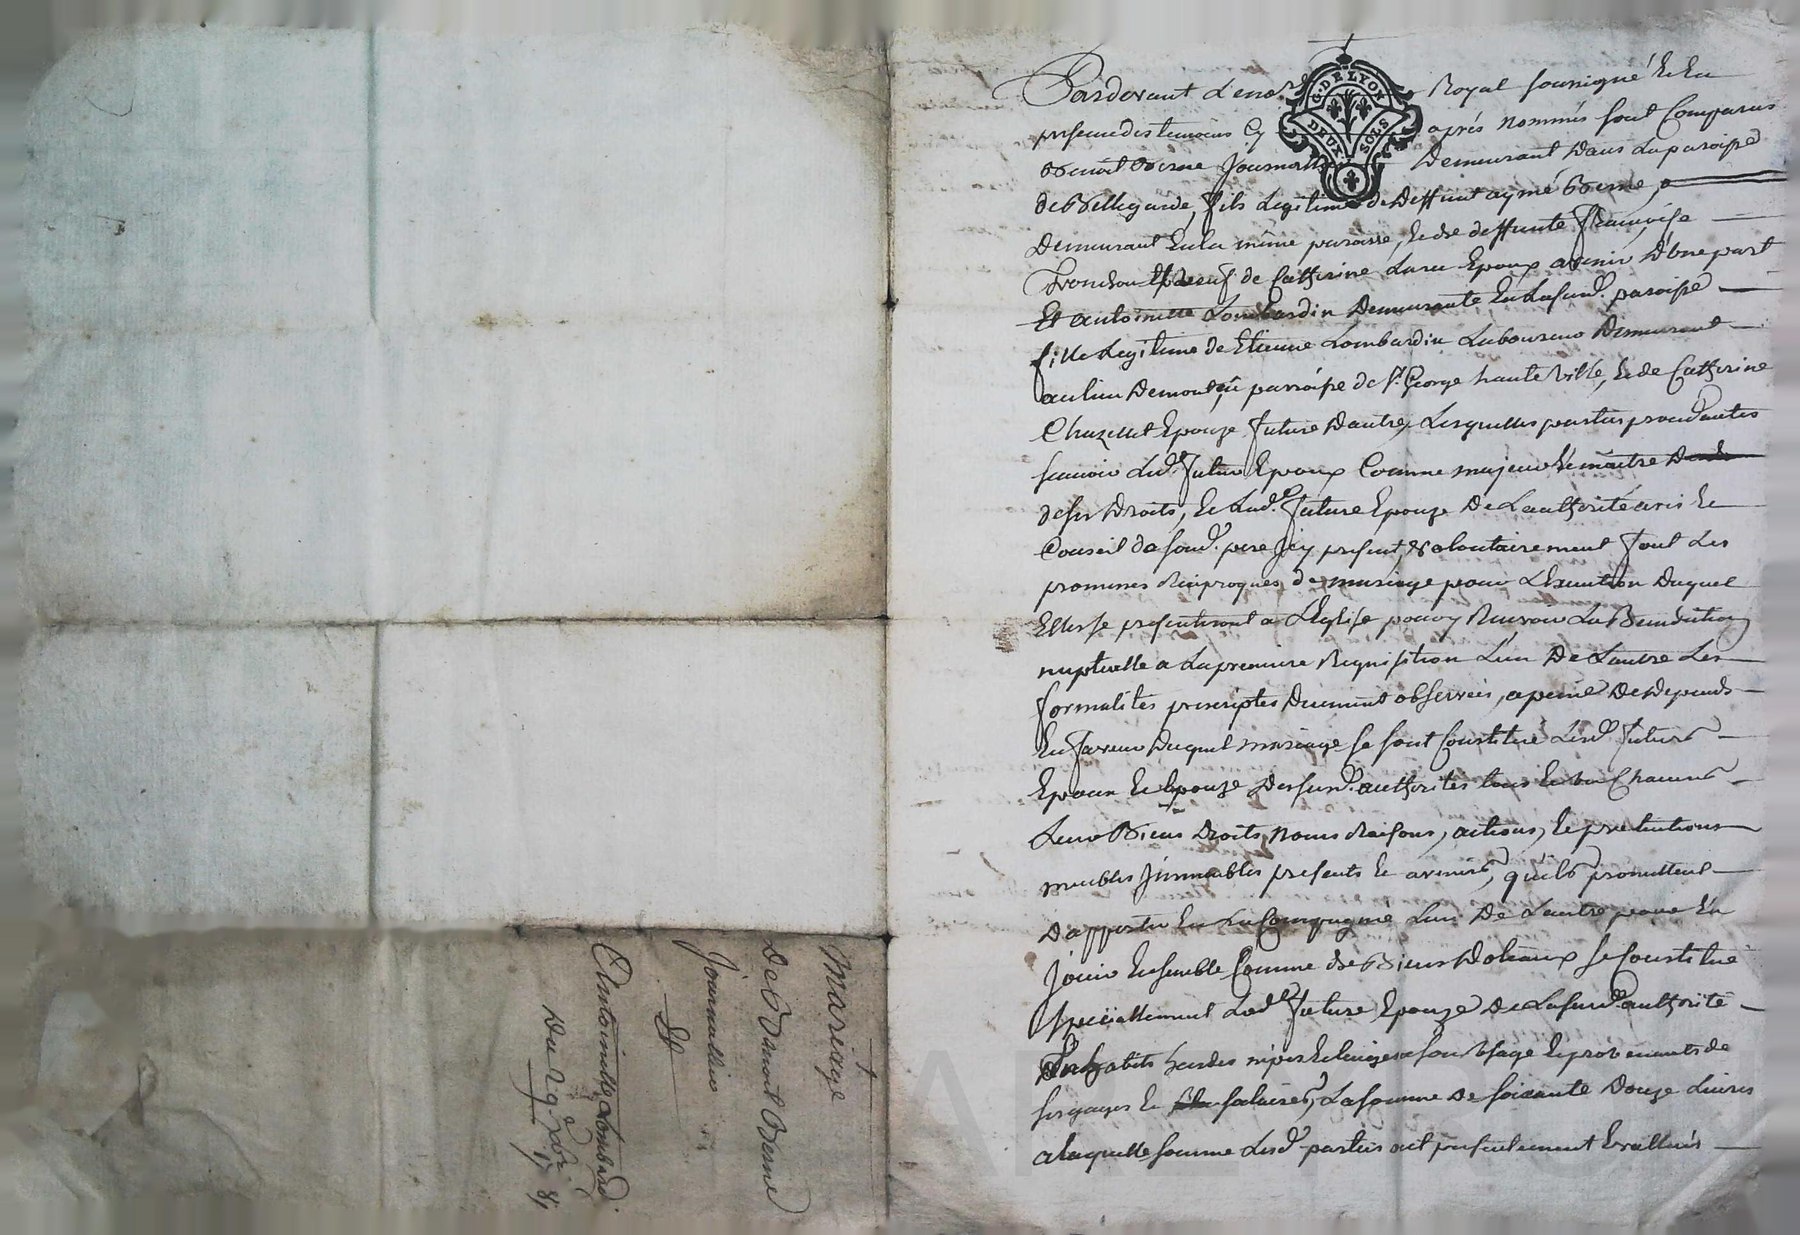 Pardevant Le no.re Royal soussigné Et En
presence des temoins Cy après nommés sont Comparus
Benoit Besne Journallier Demeurant Dans La paroisse
de Bellegarde, fils Legitime de Deffunt aymé Besne,
Demeurant En La même paroisse, Et de deffunte françoise
veuf de Catherine Laru Epoux avenir D'une part
Et antoinette Lombardin Demeurante En Lasusd.e paroisse
fille Legitime de Etienne Lombardin Laboureur Demeurant
au lieu De parroisse de S.t George hauteville, Et de Catherine
Chazellet Epouze future D'autre, Lesquelles parties proceddantes
scavoir Led.t futur Epoux Comme majeur Et maitre
de ses Droits, Et Lad.e future Epouze De L'authorité avis Et
Conseil de sond.t pere icy present, volontairement font Les
promesses Reciproques de mariage pour L'Execution Duquel
Elles se presenteront a L'Eglise pour y Recevoir La Benediction
nuptialle a La premiere Requisition L'un De L'autre Les
formalités prescriptes Duement observées, a peine De Depends
En faveur Duquel mariage se sont Constitué Lesd.ts futurs
Epoux Et Epouze De susd.e authorités tous Et Chacuns
Leurs Biens Droits, Noms Raisons, actions, Et pretentions
meubles Jmmeubles presents Et avenirs, qu'ils promettent
D'apporter En La Compagnie L'un De L'autre pour En
Jouir Ensemble Comme de Biens Dotaux se Constitue
speciallement Lad.e future Epouze De Lasusd.e authorité
En habits hardes nipes Et linges a son Usage Et provenants de
ses gages Et salaires, La somme De soixante Douze Livres
a laquelle somme Lesd.es parties ont presentement Evallués
G. DE LYON
DEUX SOLS
Mariage
De Benoit Besne
Journallier
Et
Antoinette Lombard.
Du 29 1781